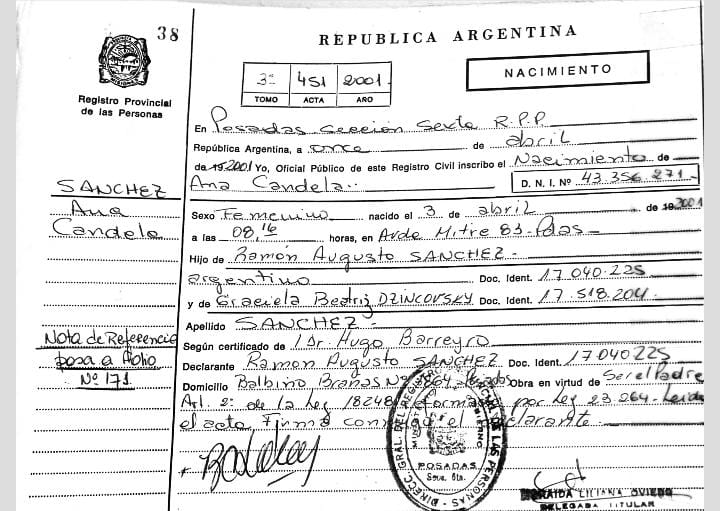 38
REPUBLICA ARGENTINA
NACIMIENTO
3º 451 2001
TOMO ACTA AÑO
Registro Provincial
de las Personas
En Posadas Sección Sexta R.P.P.
República Argentina, a once de abril
de 19 2001 Yo, Oficial Público de este Registro Civil inscribo el Nacimiento de
Ana Candela D. N. I. Nº 43.356.271
SANCHEZ
Ana
Candela
Sexo Femenino nacido el 3 de abril de 19 2001
a las 08,16 horas, en Avda Mitre 83 Pdas
Hijo de Ramón Augusto SANCHEZ
argentino Doc. Ident. 17 040 225
y de Graciela Beatriz DZINCOVSKY Doc. Ident. 17.518.204
Apellido SANCHEZ
Según certificado de Dr. Hugo Barreyro
Declarante Ramon Augusto SANCHEZ Doc. Ident. 17040225
Domicilio Balbino Brañas Nº 864 Posadas Obra en virtud de Ser el Padre
Art. 2º de la Ley 18248 por Ley 23.264 Leida
el acta, Firma conmigo el Declarante
Nota de Referencia
pasa a folio
Nº 171
DIRECC. GRAL. DEL REGISTRO DE LAS PERSONAS
POSADAS
LILIANA OVIEDO
DELEGADA TITULAR